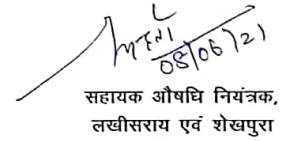 08/06/21
सहायक औषधि नियंत्रक,
लखीसराय एवं शेखपुरा